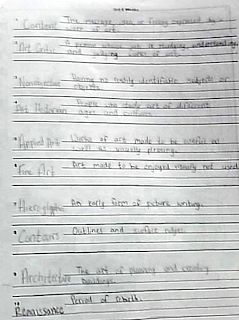 Content The message, idea or feeling expressed by a
work of art.
Art Critic A person whose job is studying, understanding,
and judging works of art.
Nonobjective Having no readily identifiable subjects or
objects.
Art Historian People who study art of different
ages and cultures.
Applied Art Works of art made to be useful as
well as visually pleasing.
Fine Art Art made to be enjoyed visually not used
Hieroglyphic An early form of picture writing.
Contours Outlines and surface ridges.
Architecture The art of planning and creating
buildings.
Renaissance Period of rebirth.